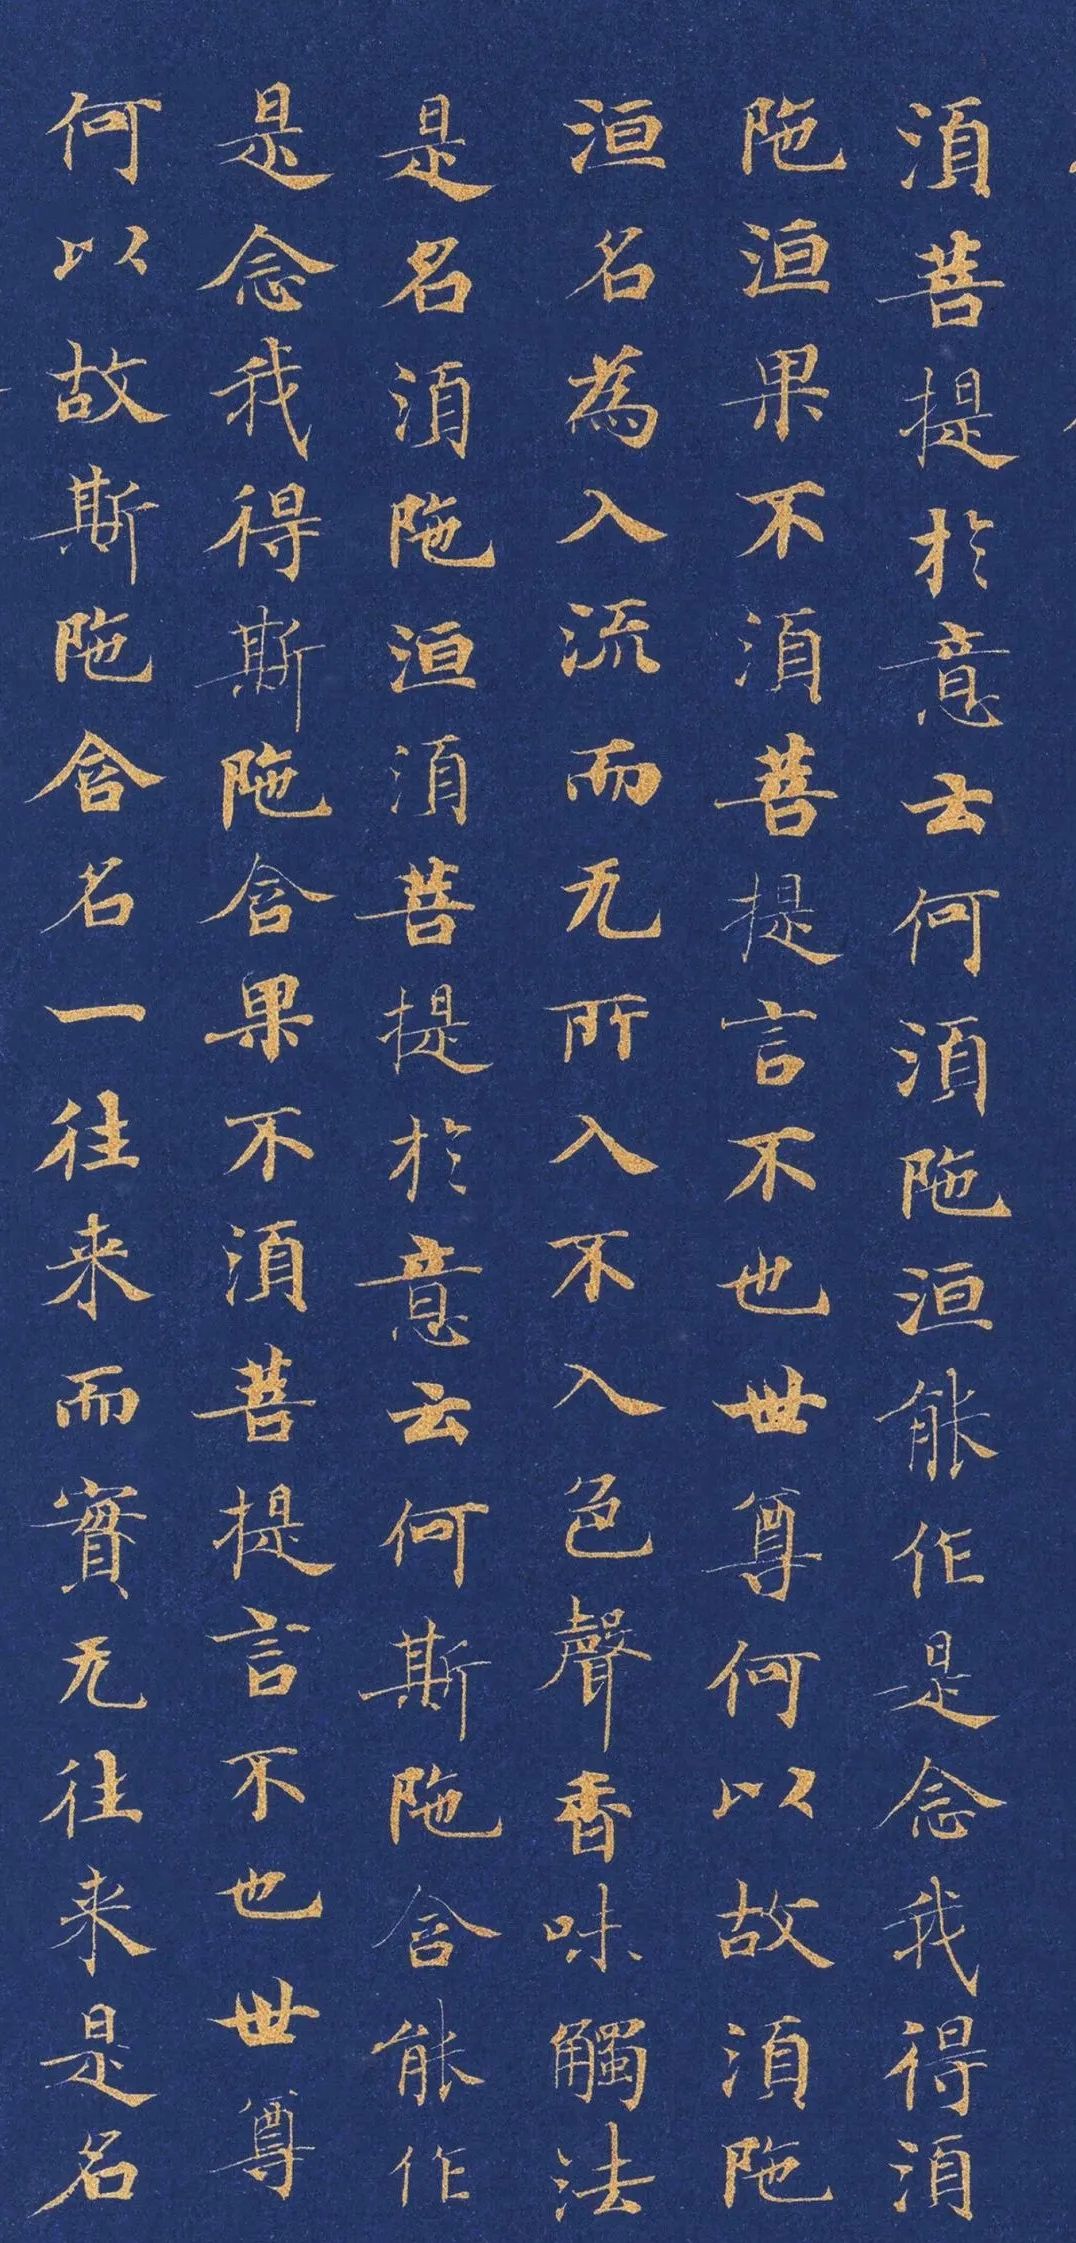 湏菩提於意云何湏陁洹能作是念我得湏
陁洹果不湏菩提言不也世尊何以故湏陁
洹名為入流而无所入不入色聲香味觸法
是名湏陁洹湏菩提於意云何斯陁含能作
是念我得斯陁含果不湏菩提言不也世尊
何以故斯陁含名一往来而實无往来是名